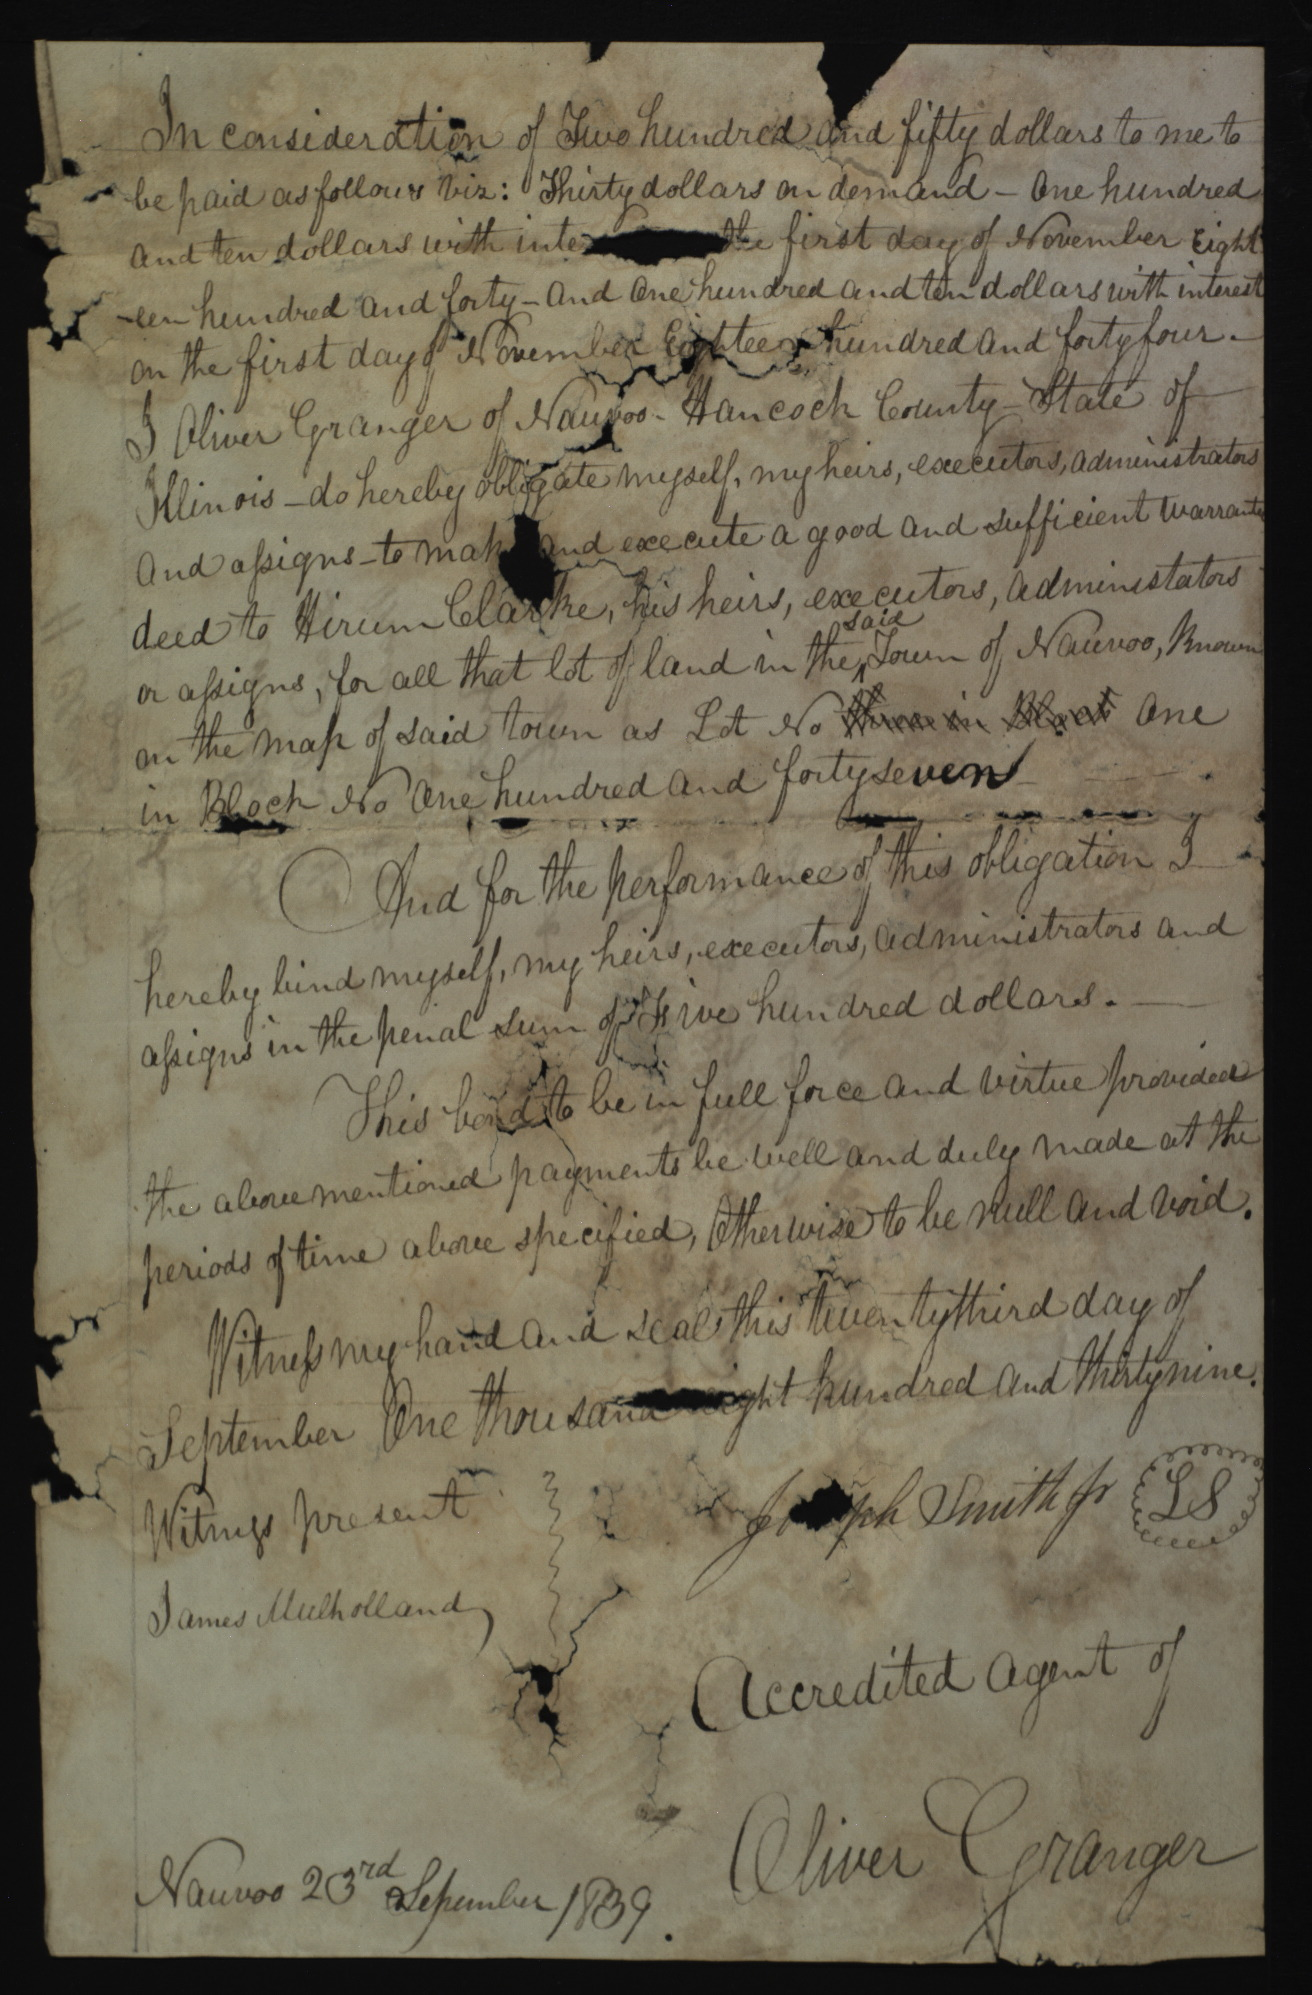 In consideration of Two hundred and fifty dollars to me to
be paid as follows viz: Thirty dollars on demand - One hundred
and ten dollars with inte the first day of November Eight
-een hundred and forty - And One hundred and ten dollars with interest
on the first day of November Eighteen hundred and forty four. -
I Oliver Granger of Nauvoo - Hancock County - State of
Illinois - do hereby obligate myself, my heirs, executors, administrators
and assigns - to mak and execute a good and sufficient warrante
deed to Hirum Clarke, his heirs, executors, administators
said
or assigns, for all that lot of land in the Town of Nauvoo, Known
on the map of said town as Lot No One
in Block No One hundred and forty seven
And for the performance of this obligation I
hereby bind myself, my heirs, executors, administrators and
assigns in the penal sum of Five hundred dollars. -
This bond to be in full force and virtue provided
the above mentioned payments be well and duly made at the
periods of time above specified, Otherwise to be null and void.
Witness my hand and seal this twenty third day of
September One thousand eight hundred and thirty nine.
Witness present
Joseph Smith Jr LS
James Mulholland
Accredited Agent of
Oliver Granger
Nauvoo 23rd Sepember 1839.